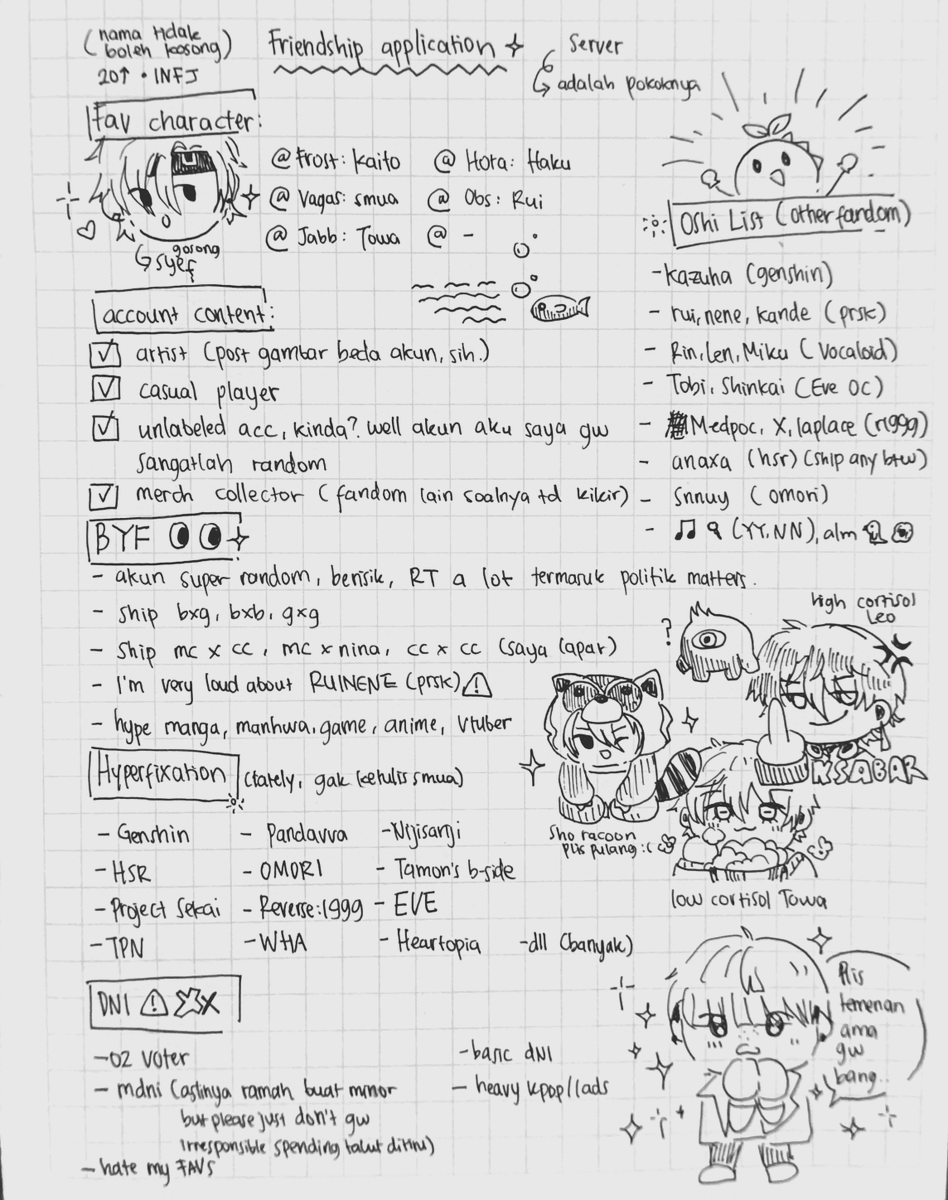 (nama tdak
boleh kosong)
20↑ • INFJ
Friendship application
Server
adalah pokoknya
Fav character:
@Frost: Kaito
@Hora: Haku
@Vagas: smua
@Obs: Rui
@Jabb: Towa
@ -
gosong
syef
Oshi List (other fandom)
- Kazuha (genshin)
- rui, nene, kande (prsk)
- Rin, Len, Miku (Vocaloid)
- Tobi, Shinkai (Eve OC)
- Medpoc, X, laplace (r1999)
- anaxa (hsr) (ship any btw)
- Snnuy (omori)
- (YY, NN), alm
account content:
artist (post gambar beda akun, sih.)
casual player
unlabeled acc, kinda? well akun aku saya gw
sangatlah random
merch collector (fandom lain soalnya td kikir)
BYF
- akun super random, berisik, RT a lot termasuk politik matters.
- ship bxg, bxb, gxg
- ship mc x cc, mc x nina, cc x cc (saya lapar)
- I'm very loud about RUINENE (prsk)
- hype manga, manhwa, game, anime, Vtuber
?
high cortisol
Leo
KSABAR
sho racoon
plis pulang :(
low cortisol Towa
Hyperfixation (lately, gak ketulis smua)
- Genshin
- Pandavva
- Nijisanji
- HSR
- OMORI
- Tamon's b-side
- Project Sekai
- Reverse:1999
- EVE
- TPN
- WHA
- Heartopia
- dll (banyak)
DNI
- 02 Voter
- basic dni
- mdni (aslinya ramah buat minor
but please just don't gw
irresponsible spending takut ditiru)
- heavy kpop/lads
- hate my FAVS
Plis
temenan
ama
gw
bang..